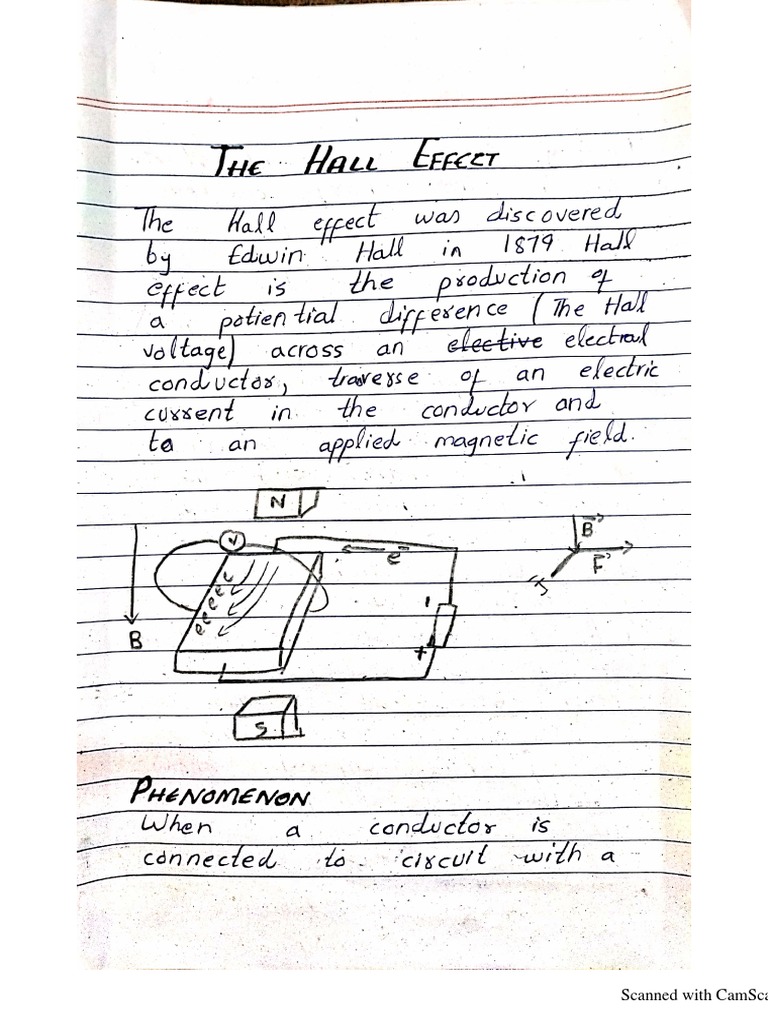 THE HALL EFFECT
The Hall effect was discovered
by Edwin Hall in 1879 Hall
effect is the production of
a potiential difference (The Hall
voltage) across an elective electral
conductor, traverse of an electric
current in the conductor and
to an applied magnetic field.
N
V
e⁻
B
F
B
+
S
PHENOMENON
When a conductor is
connected to circuit with a
Scanned with CamSca